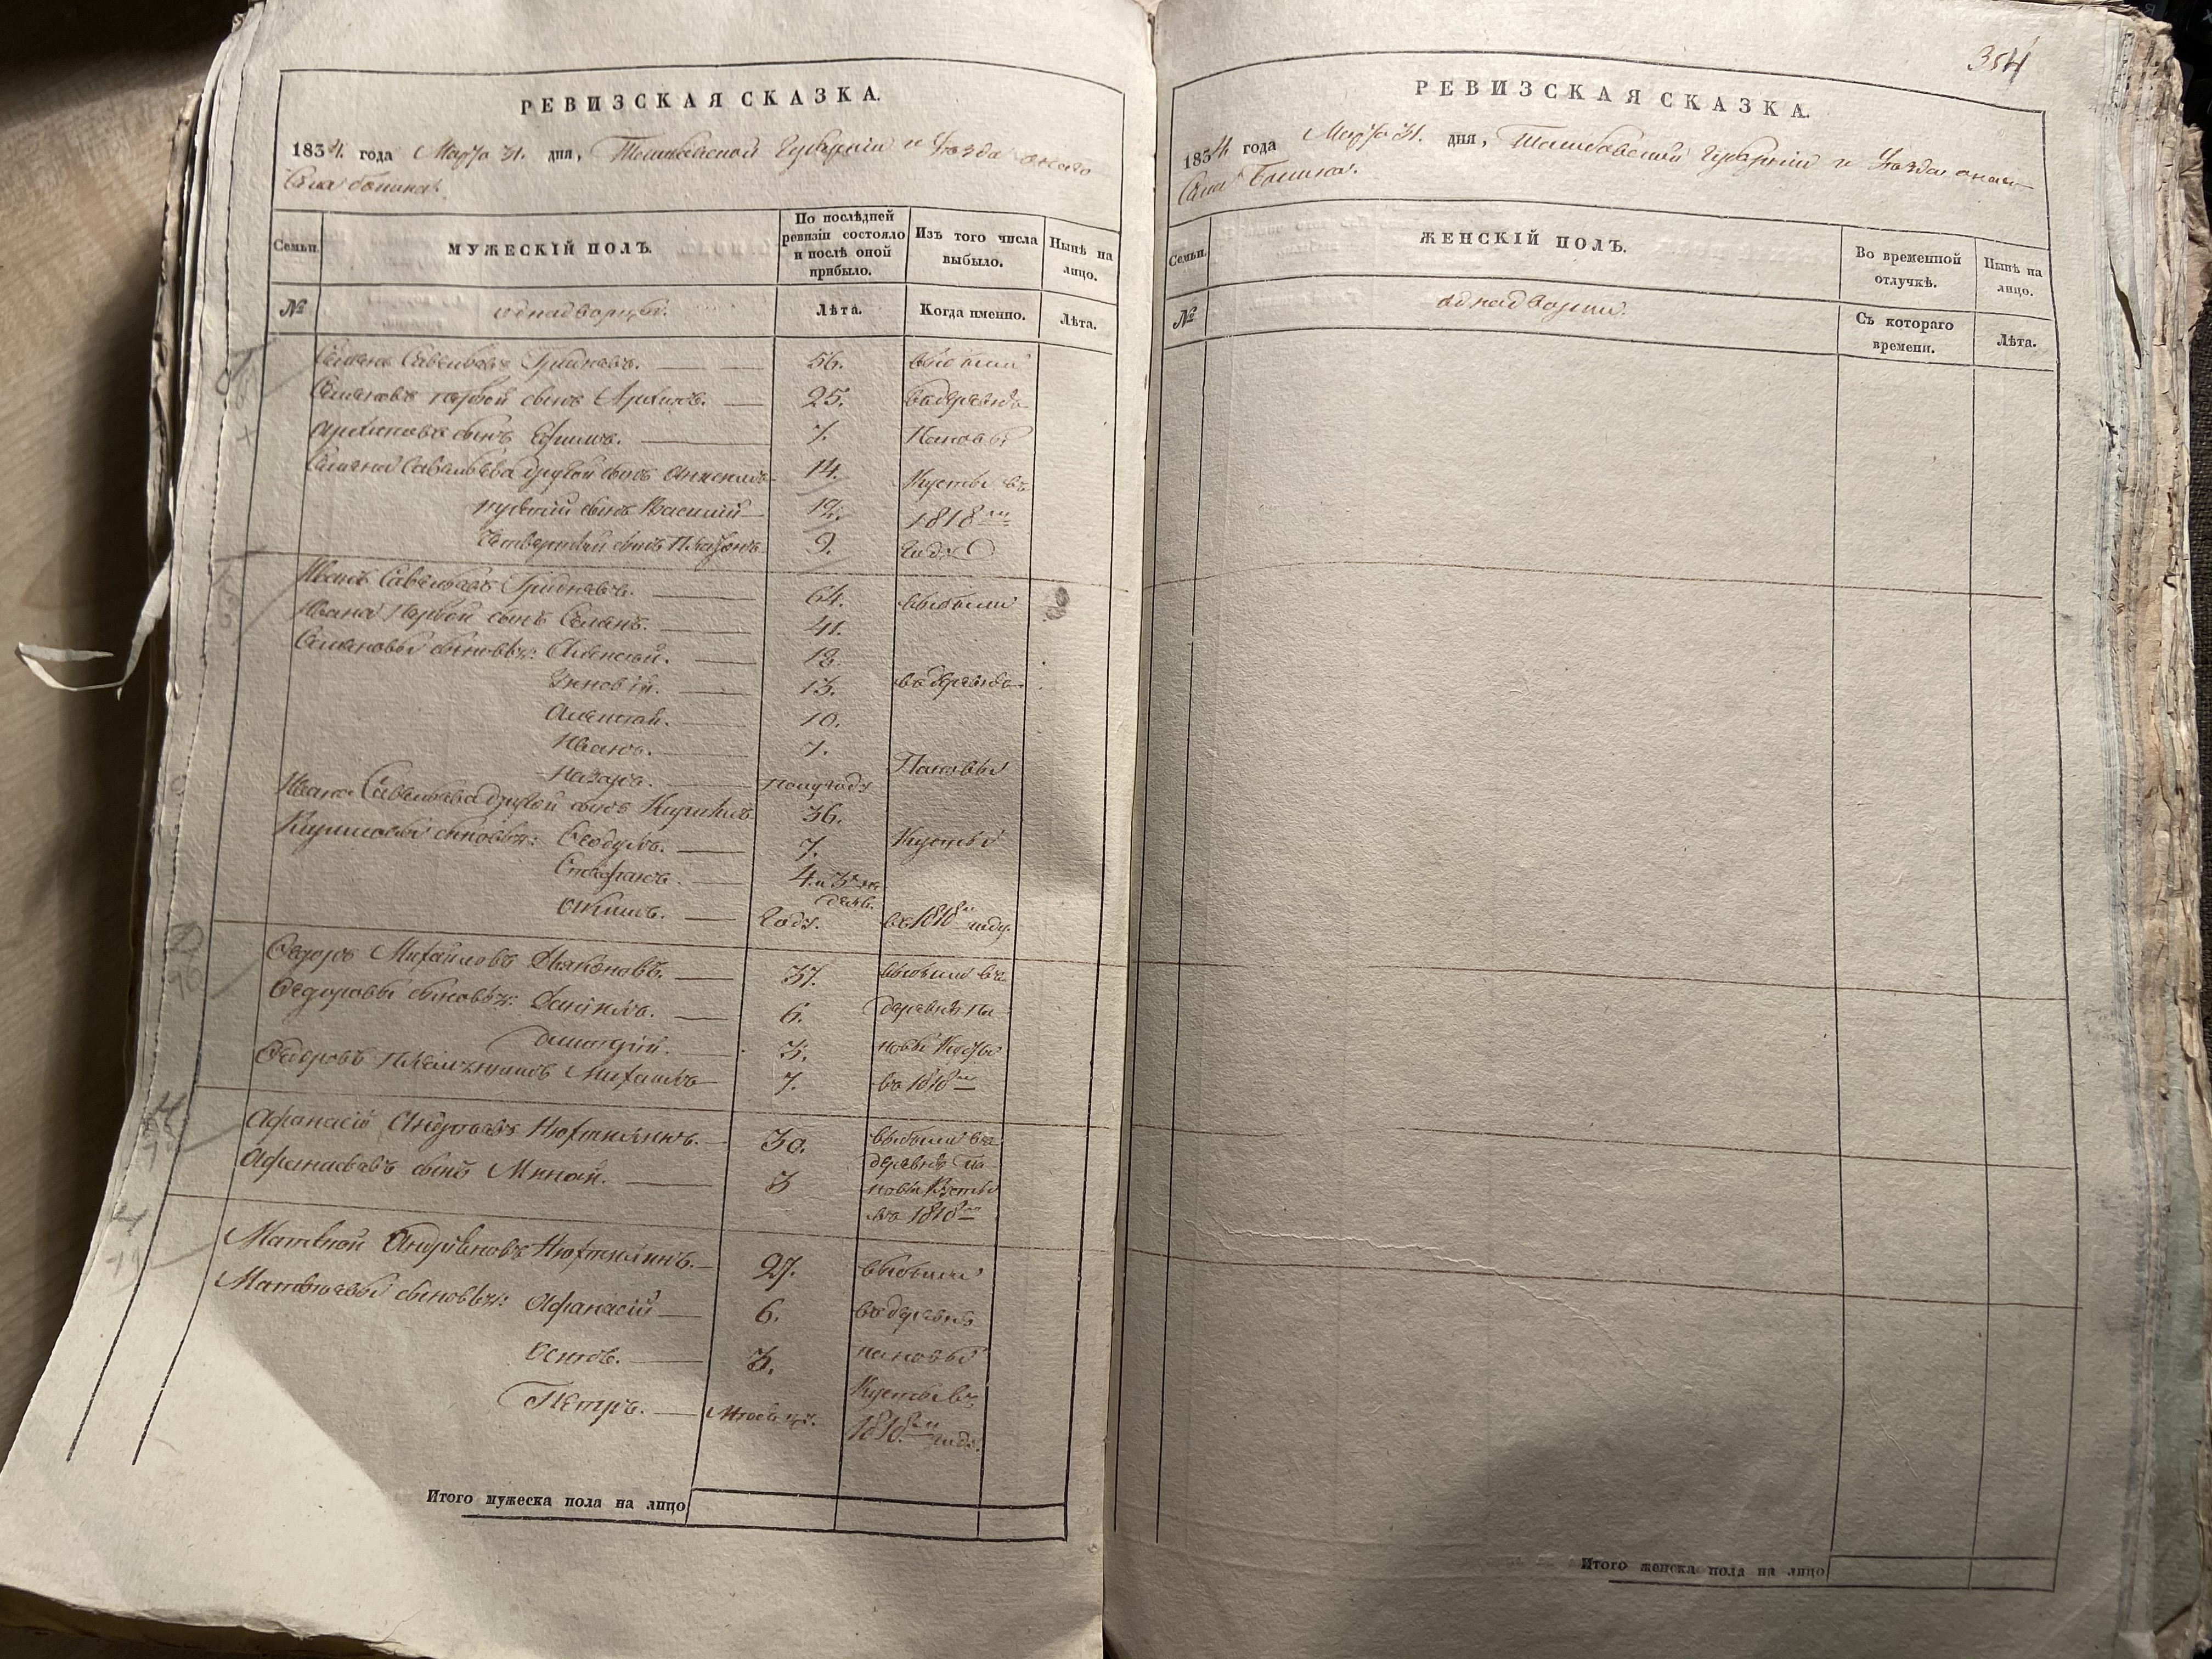 РЕВИЗСКАЯ СКАЗКА.
1834. года Марта 31. дня, Тамбовской Губернiи и Уѣзда онаго
Села
Семьи.
МУЖЕСКІЙ ПОЛЪ.
По послѣдней ревизіи состояло и послѣ оной прибыло.
Изъ того числа выбыло.
Нынѣ на лицо.
№
однадворцы.
Лѣта.
Когда именно.
Лѣта.
Семенъ Савельевъ Гридневъ. 56. выбыли
Семеновъ первой сынъ Архипъ. 25. въ деревню
Архиповъ сынъ Ефимъ. 7. Пановы
Семена Савельева другой сынъ 14. Кусты въ
третiй сынъ Василiй 12. 1818мъ
Четвертый сынъ Платонъ 9. году
Иванъ Савельевъ Гридневъ. 64. выбыли
Ивана первой сынъ Семенъ. 41.
Семеновы сыновья: Алексей. 18.
Зиновiй. 13. въ деревню
Алексей. 10.
Иванъ. 7.
Назаръ. полугоду Пановы
Ивана Савельева другой сынъ Кирилъ 36.
Кириловы сыновья: Ѳедулъ. 7. Кусты
Стефанъ. 4.
Екимъ. году. въ 1818мъ году.
Ѳедоръ Михайловъ Дьяконовъ. 37. выбыли въ
Ѳедоровы сыновья: Данiилъ. 6. деревню Па
Дмитрiй. 3. новы Кусты
Ѳедоровъ племянникъ Михаилъ 7. въ 1818мъ
Афанасiй Андреевъ Нюхтилинъ. 30. выбыли въ
деревню Па
Афанасьевъ сынъ Минай. 3 новы Кусты
въ 1818мъ
Матвѣй Нюхтилинъ. 27. выбыли
Матвѣевы сыновья: Афанасiй 6. въ деревню
Осипъ. 3. пановы
Кусты въ
Петръ. 1818мъ году.
Итого мужеска пола на лицо
354
РЕВИЗСКАЯ СКАЗКА.
1834 года Марта 31. дня, Тамбовской Губернiи и Уѣзда онаго
Села
Семьи.
ЖЕНСКІЙ ПОЛЪ.
Во временной отлучкѣ.
Нынѣ на лицо.
№
однадворки.
Съ котораго времени.
Лѣта.
Итого женска пола на лицо